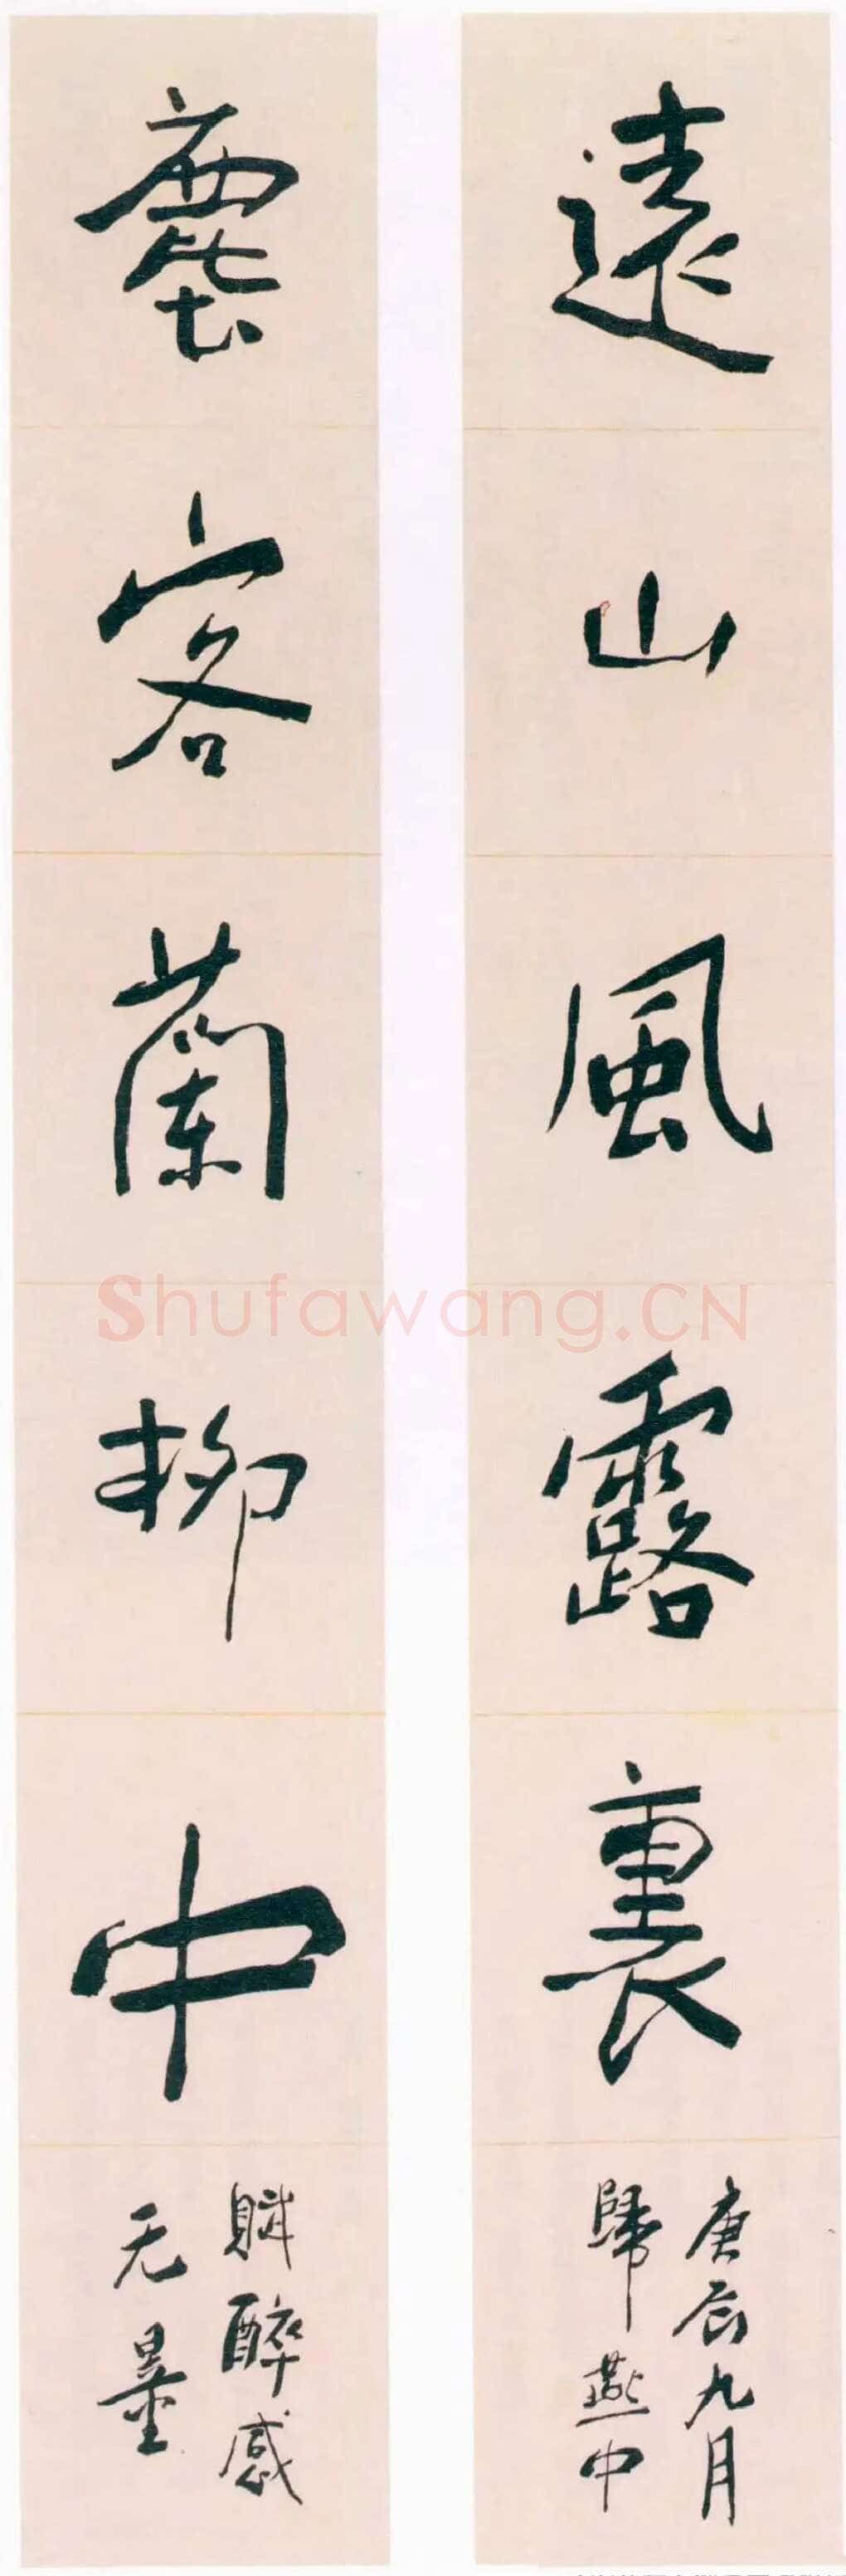 遠山風露裏
庚辰九月
歸燕中
塵客蘭柳中
賦醉感
无量
Shufawang.CN